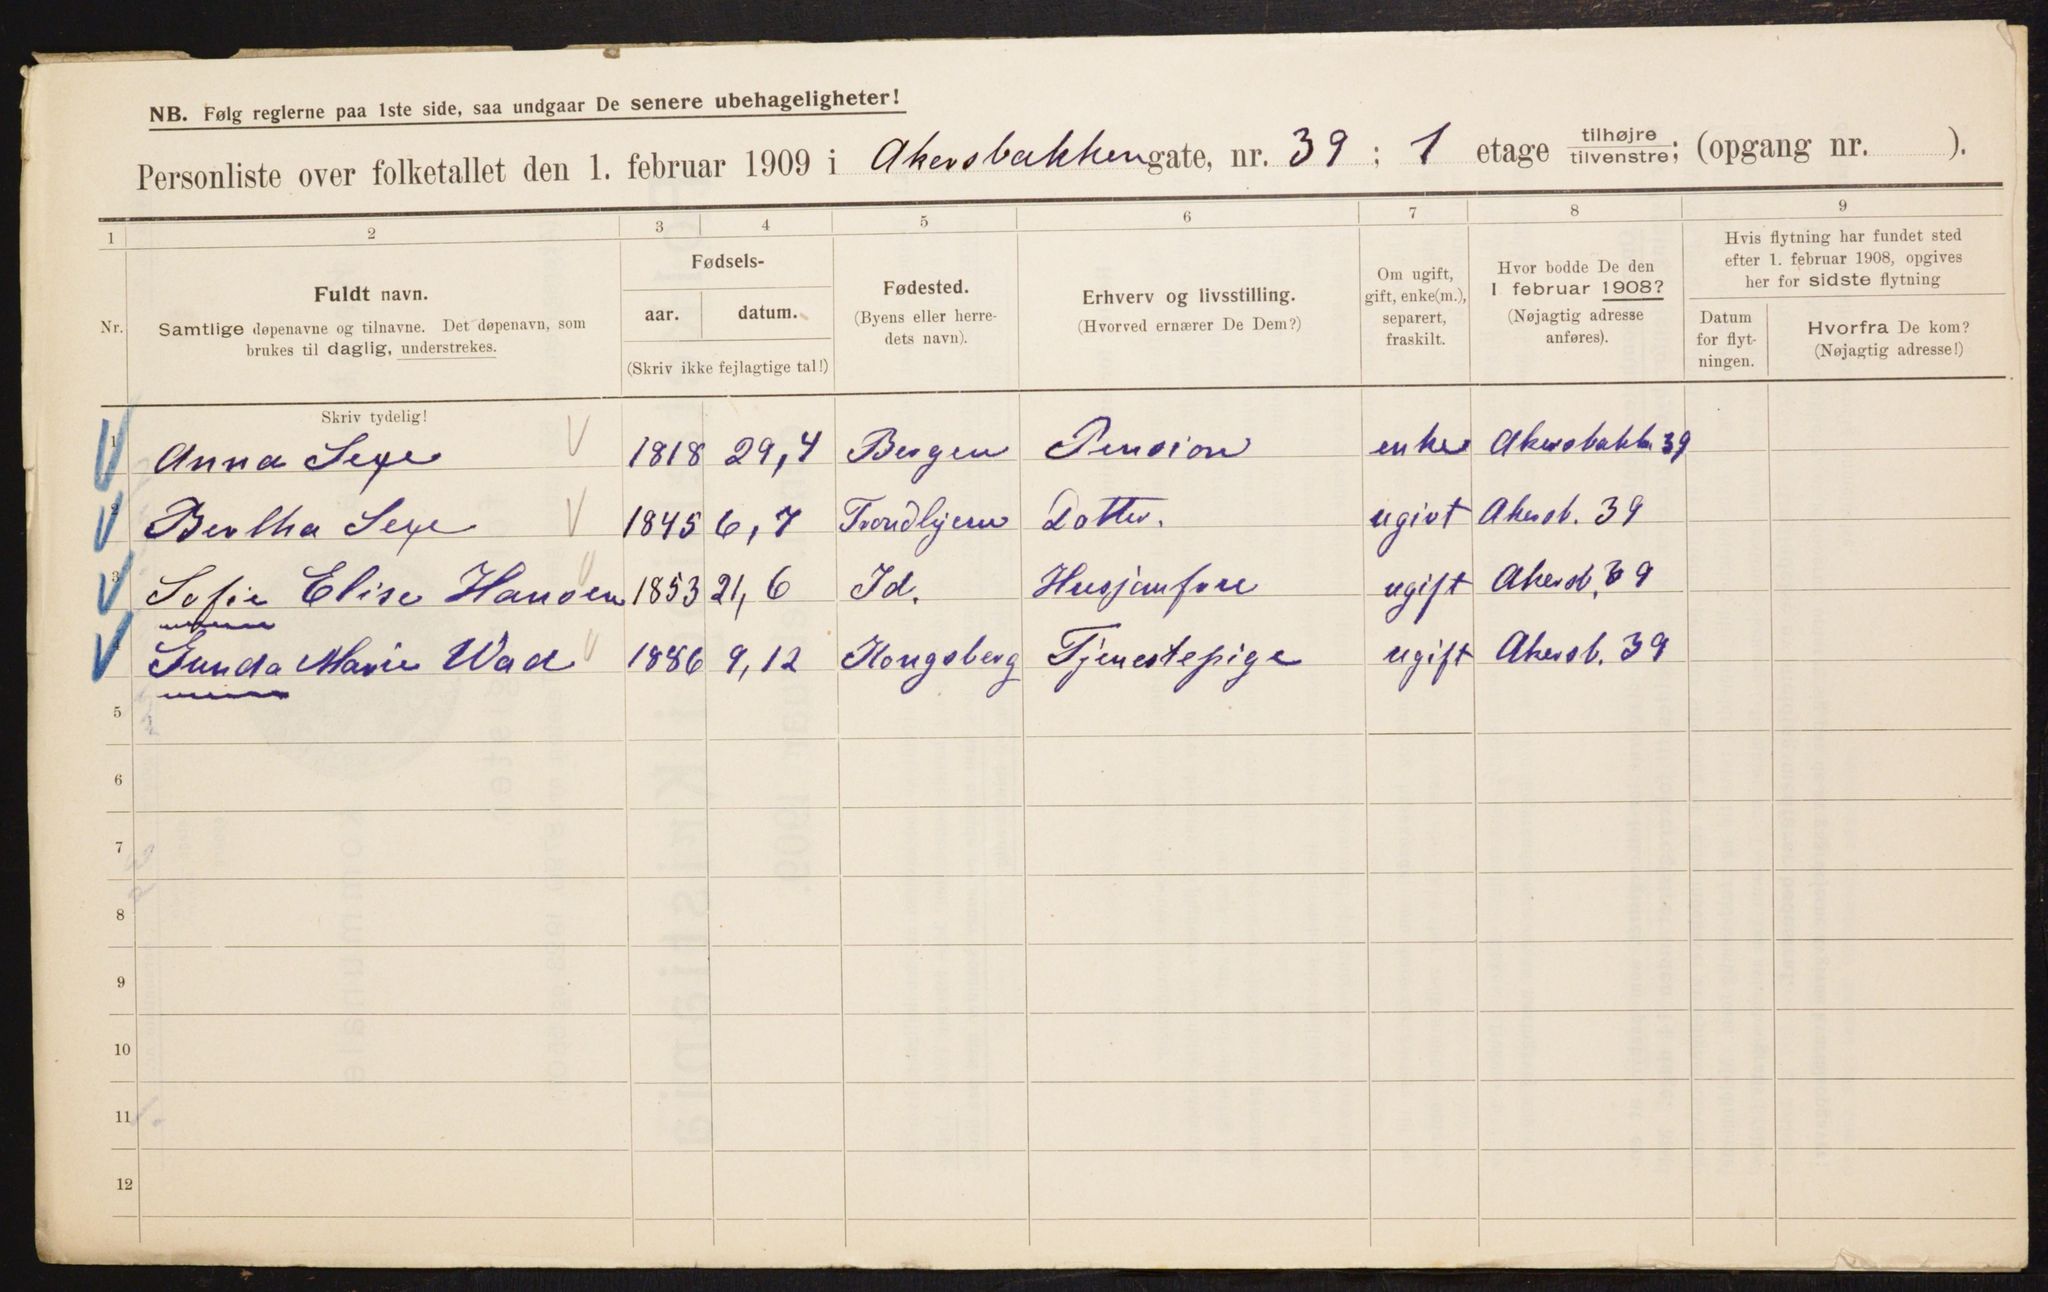 NB. Følg reglerne paa 1ste side, saa undgaar De senere ubehageligheter!
Personliste over folketallet den 1. februar 1909 i Akersbakkengate, nr. 39 ; 1 etage tilhøjre/tilvenstre; (opgang nr. ).
1 2 3 4 5 6 7 8 9
Nr.
Fuldt navn.
Samtlige døpenavne og tilnavne. Det døpenavn, som
brukes til daglig, understrekes.
Fødsels-
aar. datum.
(Skriv ikke fejlagtige tal!)
Fødested.
(Byens eller herre-
dets navn).
Erhverv og livsstilling.
(Hvorved ernærer De Dem?)
Om ugift,
gift, enke(m.),
separert,
fraskilt.
Hvor bodde De den
1 februar 1908?
(Nøjagtig adresse
anføres).
Hvis flytning har fundet sted
efter 1. februar 1908, opgives
her for sidste flytning
Datum
for flyt-
ningen.
Hvorfra De kom?
(Nøjagtig adresse!)
Skriv tydelig!
1 Anna Sexe 1818 29,4 Bergen Pension enke Akersbakk. 39
2 Bertha Sexe 1845 6,7 Trondhjem Dotter. ugivt Akersb. 39
3 Sofie Elise Hansen 1853 21,6 Id. Husjomfru ugift Akersb. 39
4 Gunda Marie Wad 1886 9,12 Kongsberg Tjenestepige ugift Akersb. 39
5
6
7
8
9
10
11
12